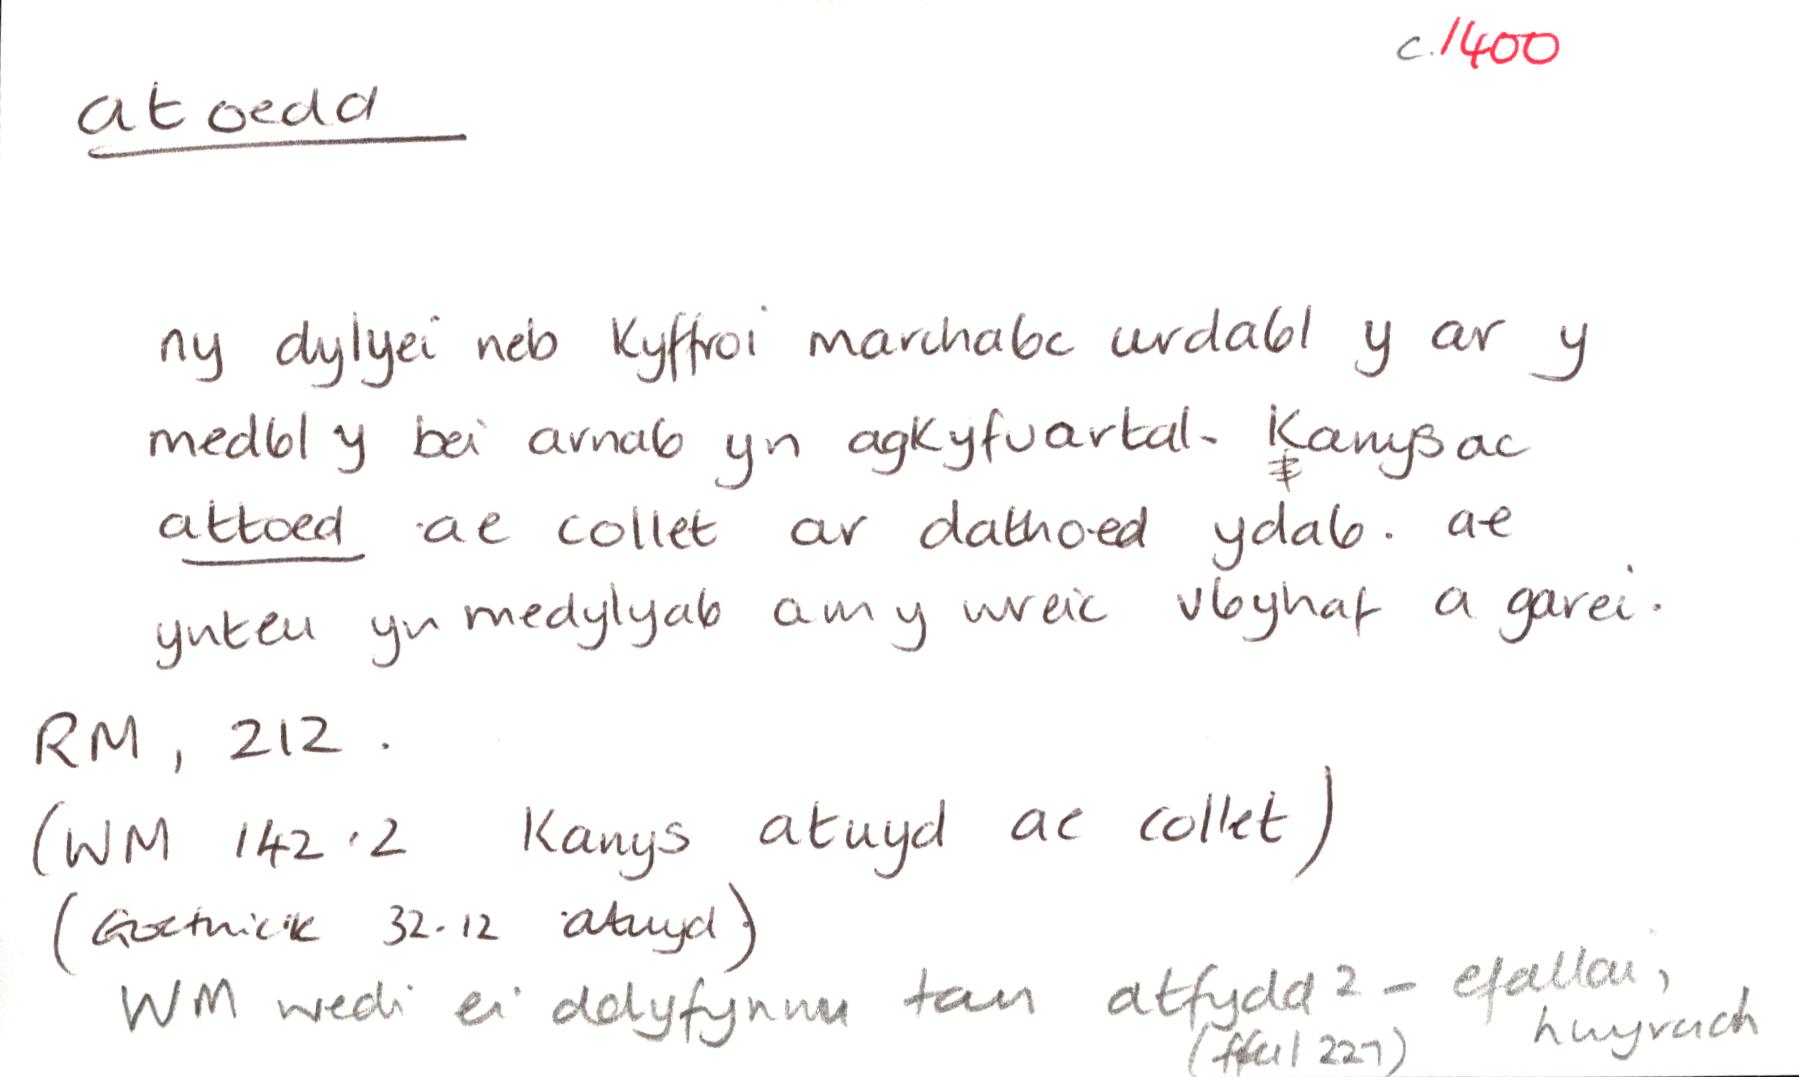 c. 1400
atoedd
ny dylyei neb kyffroi marchabc urdabl y ar y
medbl y bei arnab yn agkyfvartal. Kanys ac
attoed ae collet ar dathoed ydab. ae
ynteu yn medylyab am y wreic vbyhaf a garei.
RM, 212.
(WM 142.2 Kanys atuyd ae collet)
(Goetnick 32.12 atuyd)
WM wedi ei ddyfynnu tan atfydd 2 - efallai,
huyrach
(ffurf 227)